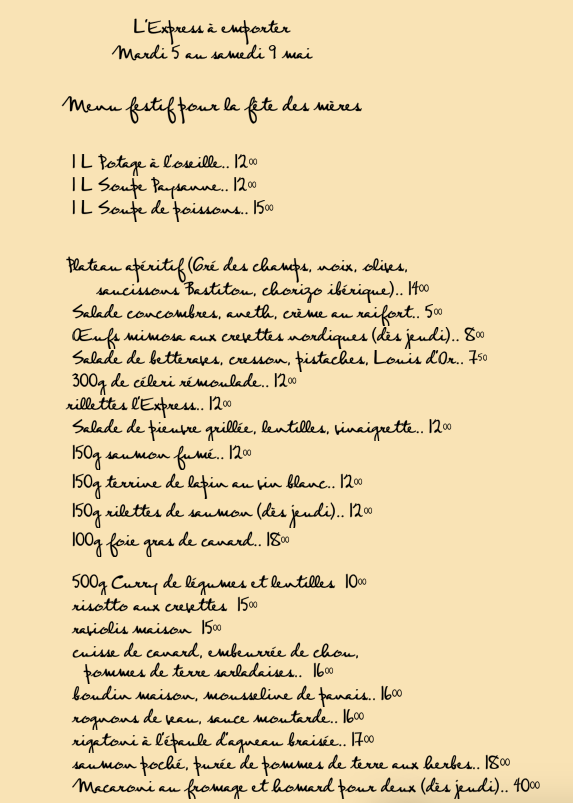 L'Express à emporter
Mardi 5 au samedi 9 mai
Menu festif pour la fête des mères
1 L Potage à l'oseille.. 12⁰⁰
1 L Soupe Paysanne.. 12⁰⁰
1 L Soupe de poissons.. 15⁰⁰
Plateau apéritif (Gré des champs, noix, olives,
saucissons Bastitou, chorizo ibérique).. 14⁰⁰
Salade concombres, aneth, crème au raifort.. 5⁰⁰
Œufs mimosa aux crevettes nordiques (dès jeudi).. 8⁰⁰
Salade de betteraves, cresson, pistaches, Louis d'Or.. 7⁵⁰
300g de céleri rémoulade.. 12⁰⁰
rillettes l'Express.. 12⁰⁰
Salade de pieuvre grillée, lentilles, vinaigrette.. 12⁰⁰
150g saumon fumé.. 12⁰⁰
150g terrine de lapin au vin blanc.. 12⁰⁰
150g rilettes de saumon (dès jeudi).. 12⁰⁰
100g foie gras de canard.. 18⁰⁰
500g Curry de légumes et lentilles 10⁰⁰
risotto aux crevettes 15⁰⁰
raviolis maison 15⁰⁰
cuisse de canard, embeurrée de chou,
pommes de terre sarladaises.. 16⁰⁰
boudin maison, mousseline de panais.. 16⁰⁰
rognons de veau, sauce moutarde.. 16⁰⁰
rigatoni à l'épaule d'agneau braisée.. 17⁰⁰
saumon poché, purée de pommes de terre aux herbes.. 18⁰⁰
Macaroni au fromage et homard pour deux (dès jeudi).. 40⁰⁰